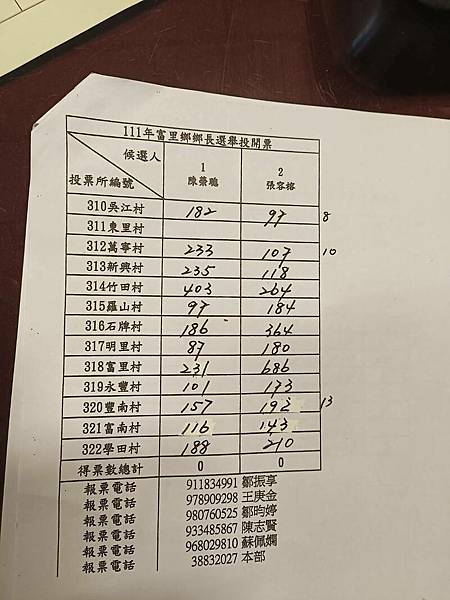 111年富里鄉鄉長選舉投開票
候選人 1 2
投票所編號 陳榮聰 張容榕
310吳江村 182 97 8
311東里村
312萬寧村 233 107 10
313新興村 235 118
314竹田村 403 264
315羅山村 97 184
316石牌村 186 364
317明里村 87 180
318富里村 231 686
319永豐村 101 173
320豐南村 157 192 13
321富南村 116 143
322學田村 188 210
得票數總計 0 0
報票電話 911834991 鄒振享
報票電話 978909298 王庚金
報票電話 980760525 鄒昀婷
報票電話 933485867 陳志賢
報票電話 968029810 蘇佩嫻
報票電話 38832027 本部